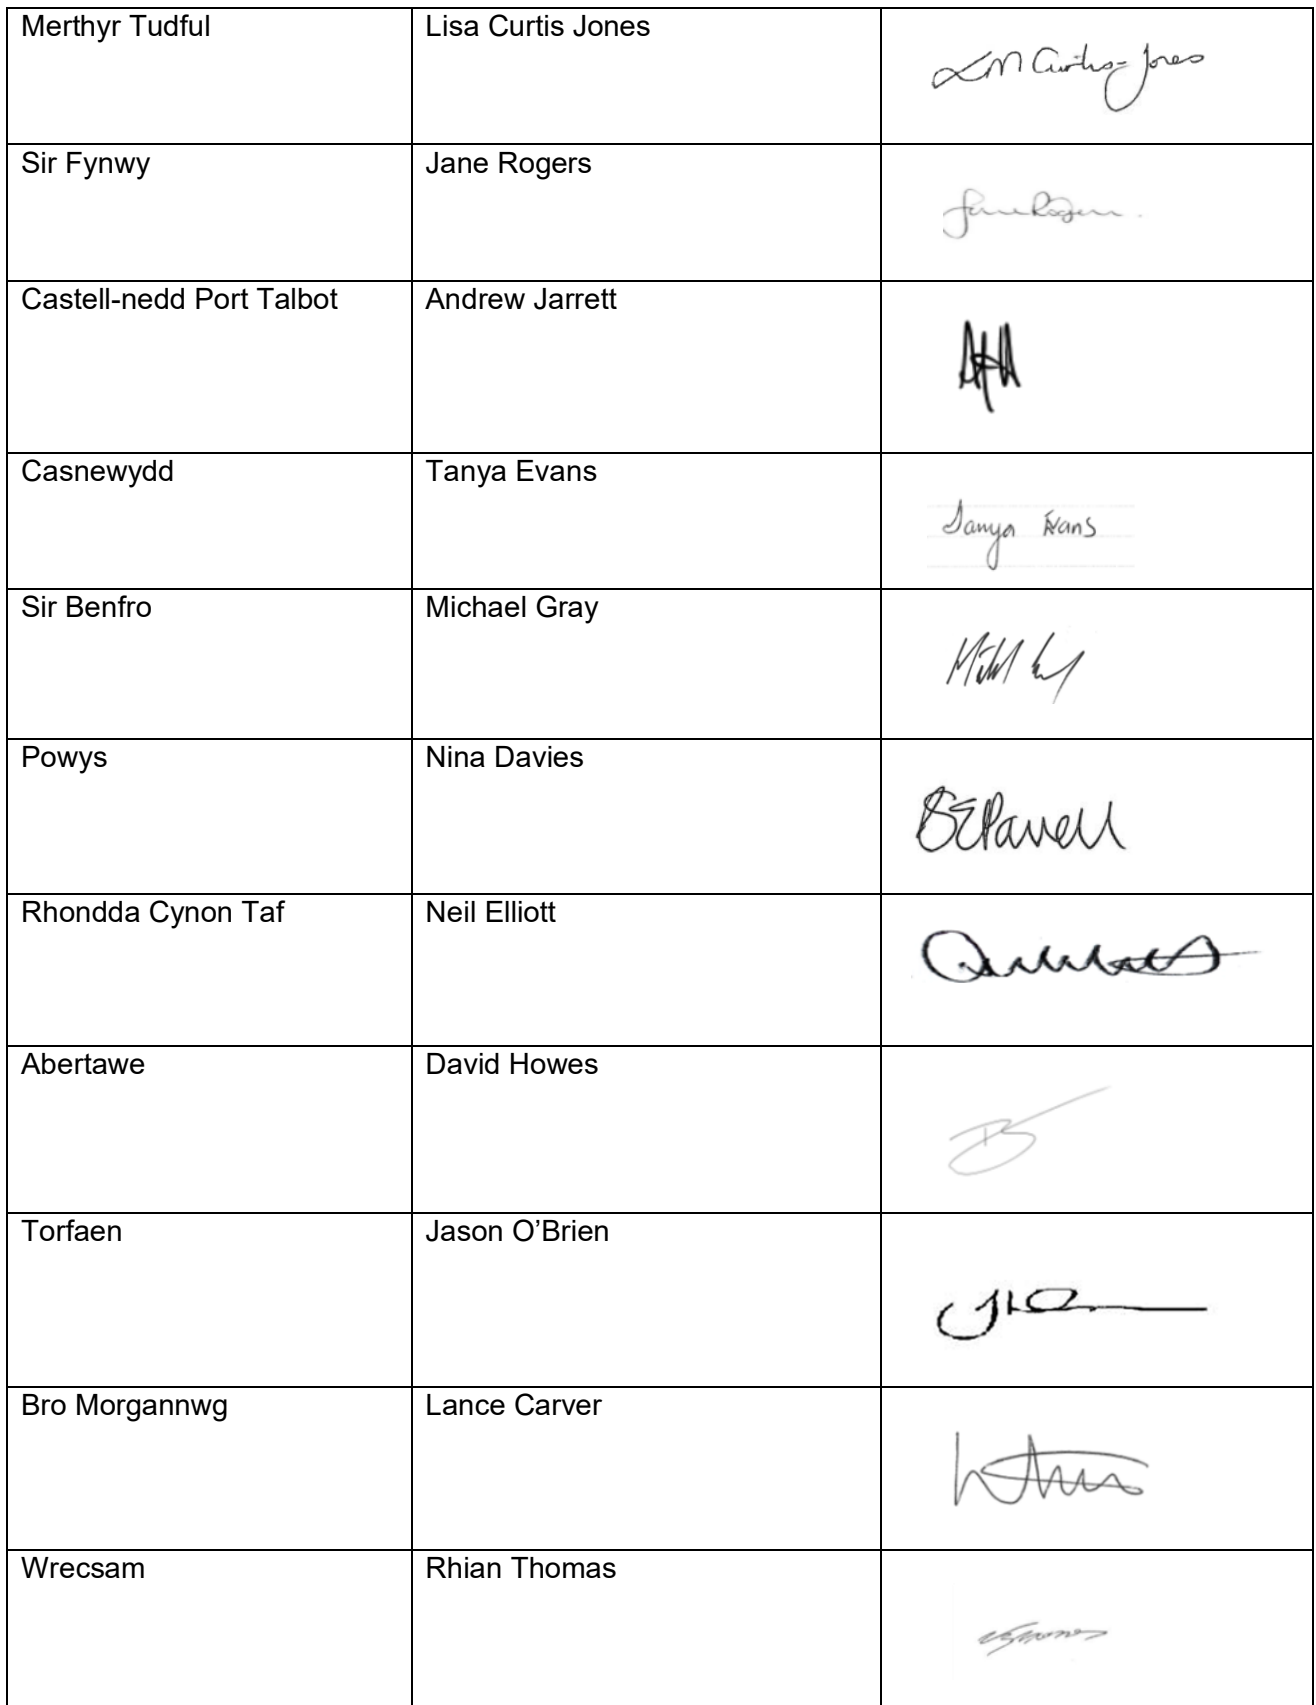 Merthyr Tudful
Lisa Curtis Jones
LM Curtis-Jones
Sir Fynwy
Jane Rogers
Jane Rogers
Castell-nedd Port Talbot
Andrew Jarrett
Casnewydd
Tanya Evans
Tanya Evans
Sir Benfro
Michael Gray
Powys
Nina Davies
Rhondda Cynon Taf
Neil Elliott
Abertawe
David Howes
Torfaen
Jason O’Brien
Bro Morgannwg
Lance Carver
Wrecsam
Rhian Thomas